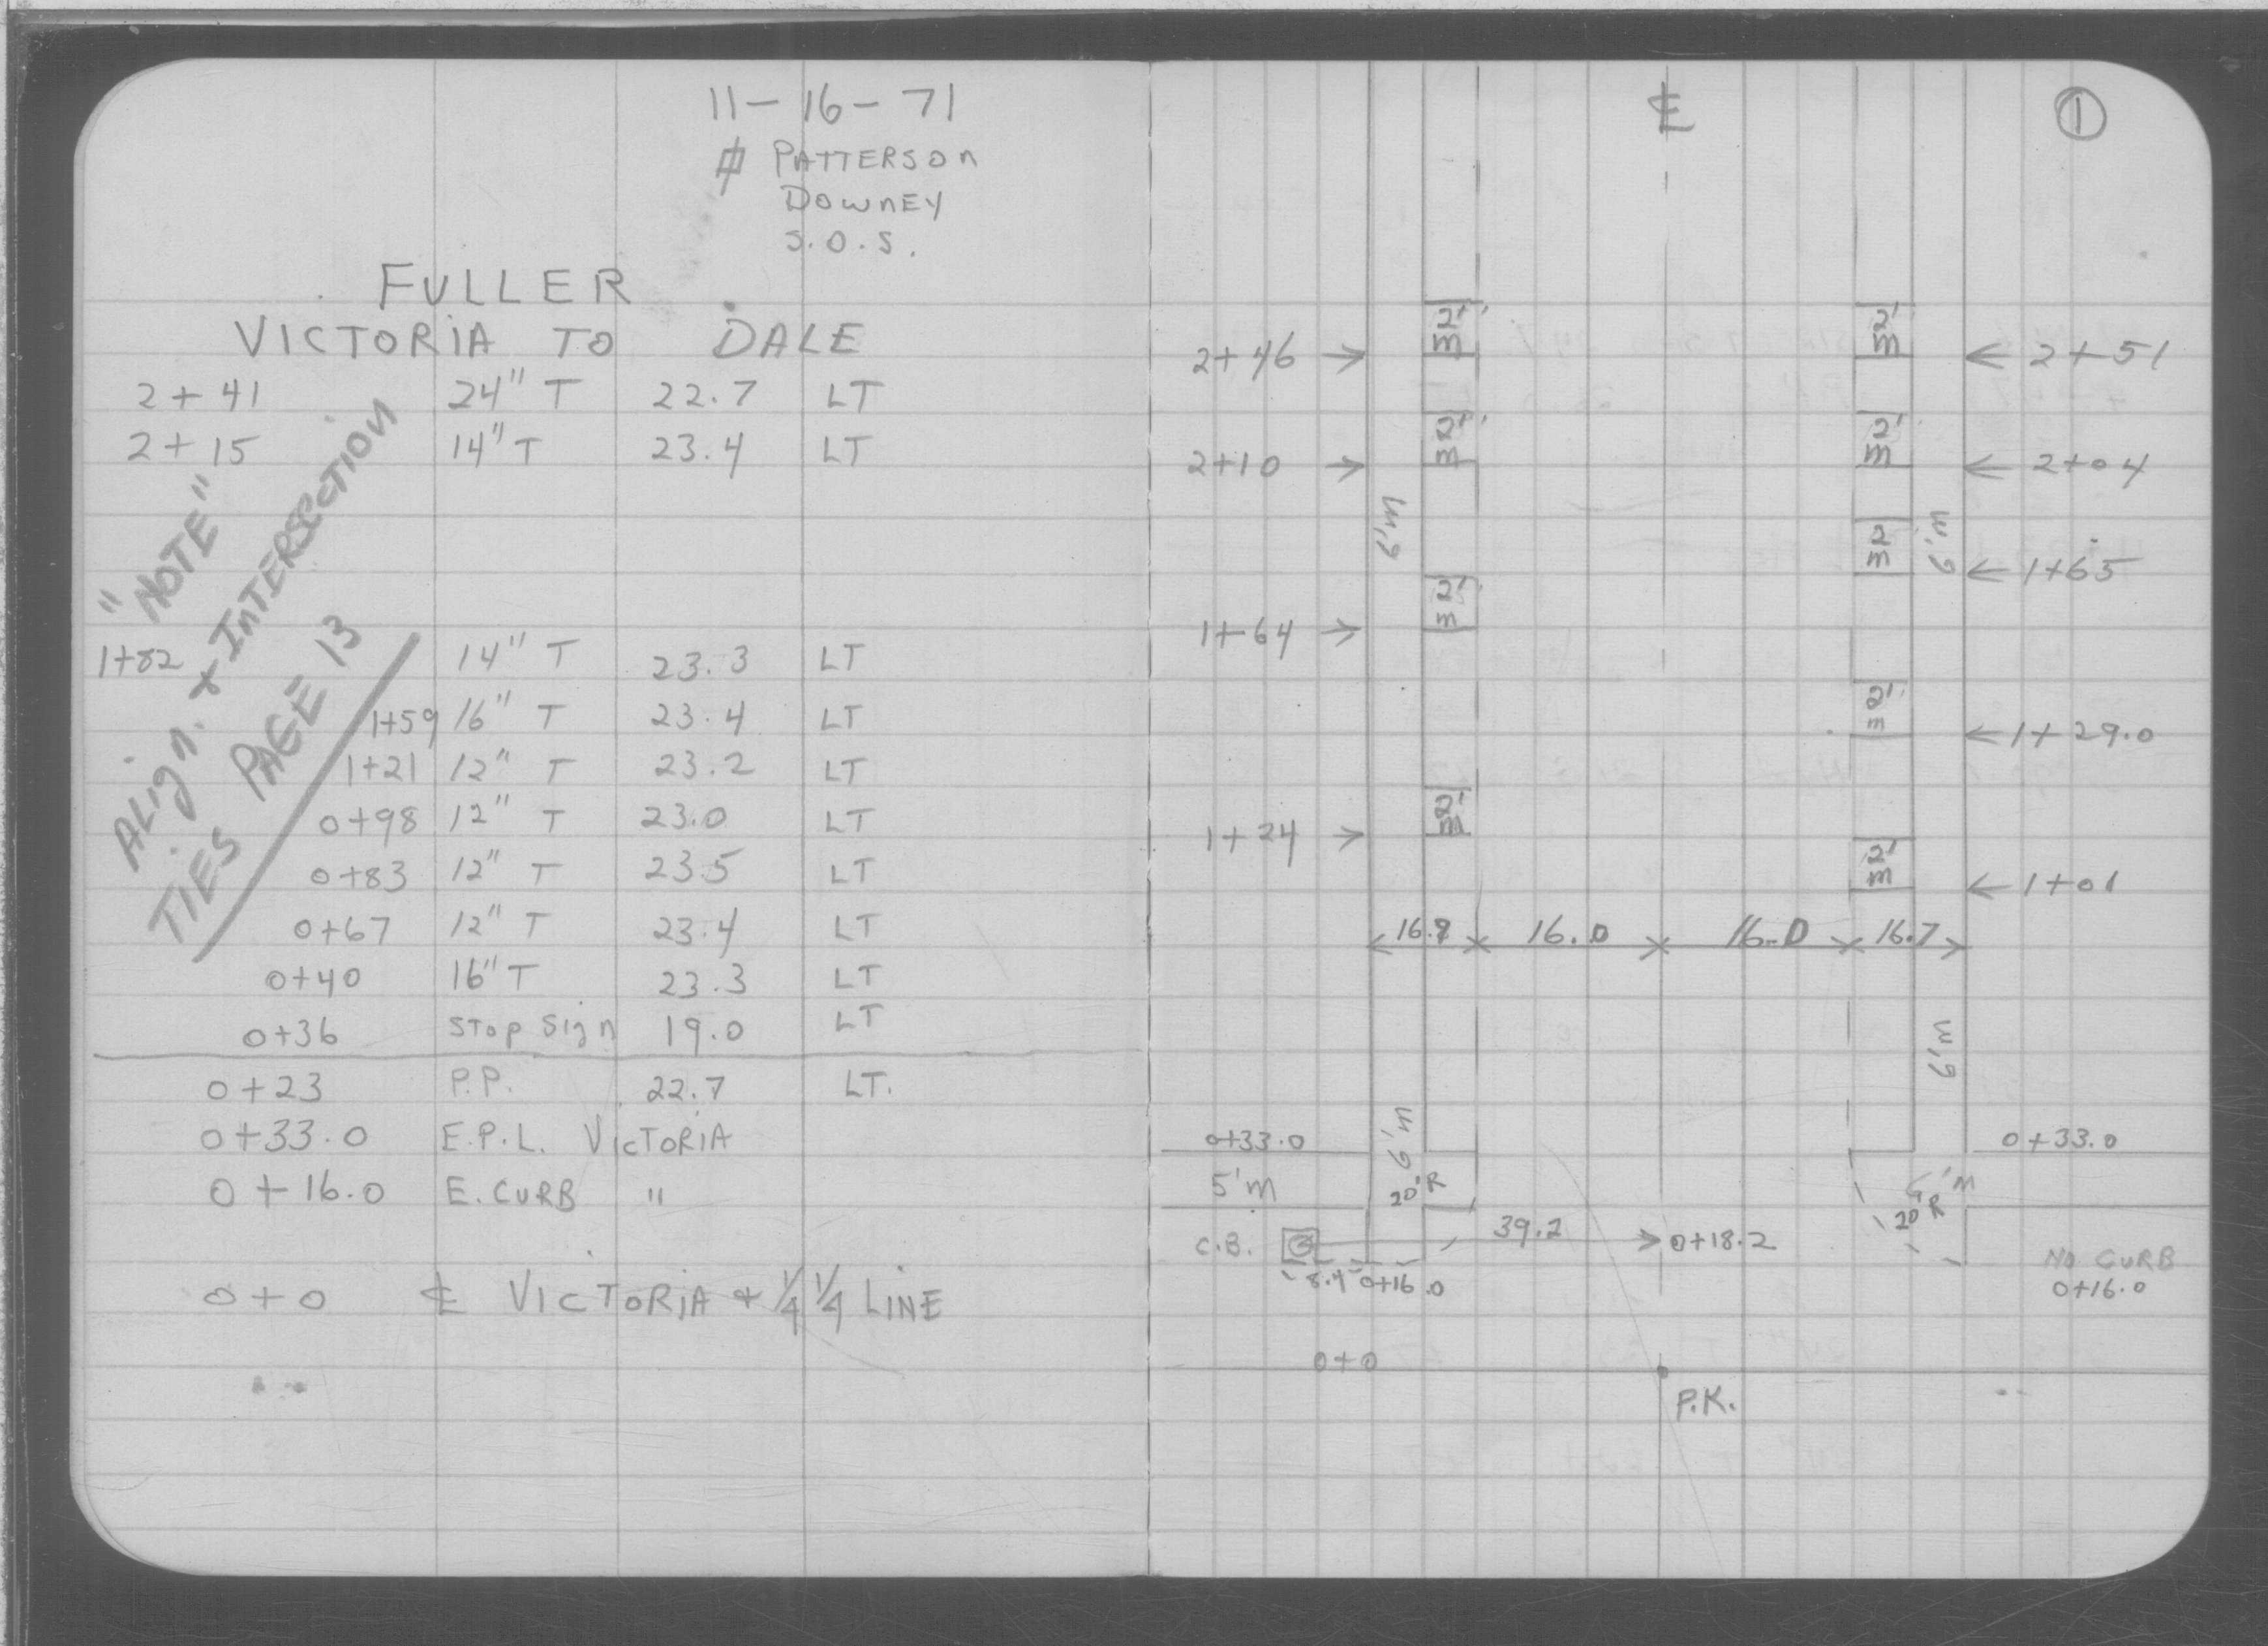 11-16-71
PATTERSON
DOWNEY
S.O.S.
FULLER
VICTORIA TO DALE
2+41 24" T 22.7 LT
2+15 14" T 23.4 LT
"NOTE"
Align. & INTERSECTION
TIES PAGE 13
1+82 14" T 23.3 LT
1+59 16" T 23.4 LT
1+21 12" T 23.2 LT
0+98 12" T 23.0 LT
0+83 12" T 23.5 LT
0+67 12" T 23.4 LT
0+40 16" T 23.3 LT
0+36 STOP SIGN 19.0 LT
0+23 P.P. 22.7 LT.
0+33.0 E.P.L. VICTORIA
0+16.0 E. CURB "
0+0 ℄ VICTORIA & 1/4 1/4 LINE
℄ 1
2' m 2' m
2+46 → ← 2+51
2' m 2' m
2+10 → ← 2+04
6'm 2 m 6'm
← 1+65
2' m
1+64 →
2' m
← 1+29.0
2' m
1+24 →
2' m
← 1+01
16.0 16.0 16.7
6'm
6'm
0+33.0 0+33.0
5'm 20'R 20'R
C.B. 39.2 → 0+18.2
NO CURB
8.4 0+16.0 0+16.0
0+0
P.K.